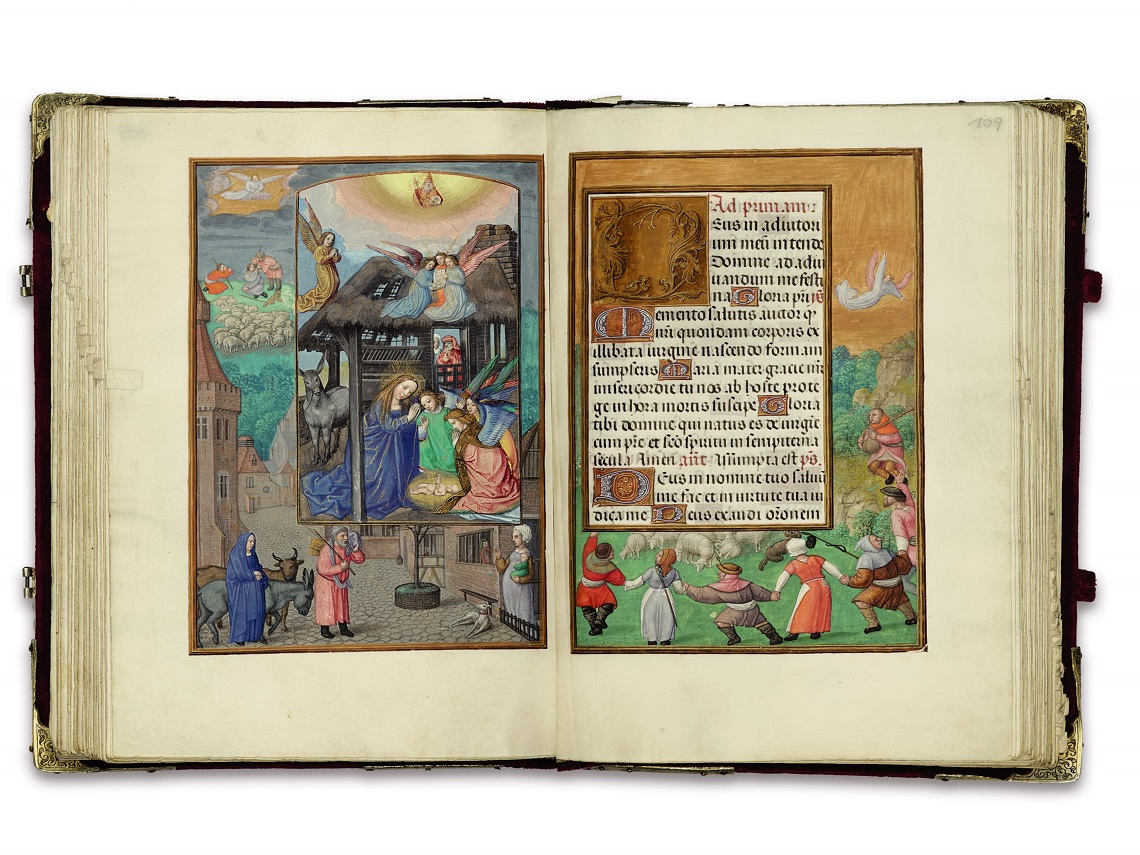 109
Ad primam:
Eus in adiutori
um meū intende
Domine ad adiu
uandum me festi
na Gloria pri ps
Memento salutis auctor q̄
nr̄i quondam corporis ex
illibata uirgine nascendo formam
sumpseris Maria mater gracie mr̄
misericordie tu nos ab hoste prote
ge in hora mortis suscipe Gloria
tibi domine qui natus es de uirgīe
cum pr̄e et sc̄o spiritu in sempiterna
secula Amen añt Assumpta est ps.
DEus in nomine tuo saluū
me fac et in uirtute tua iu
dica me Deus exaudi or̄onem